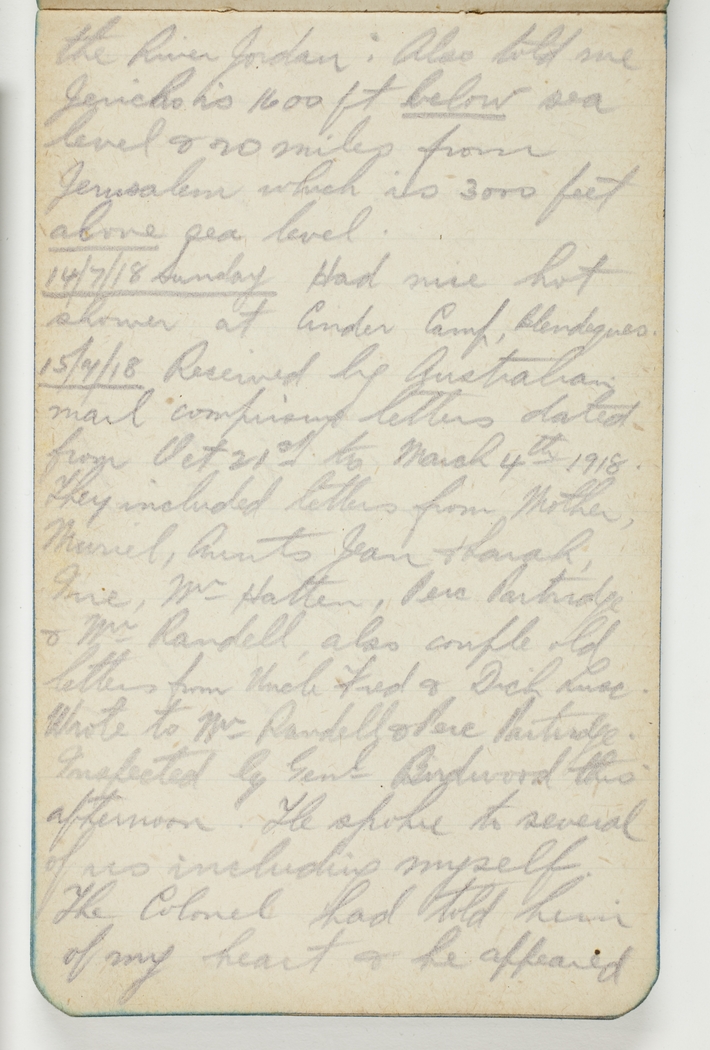 the River Jordan; Also told me
Jericho is 1600 ft below sea
level & 20 miles from
Jerusalem which is 3000 feet
above sea level.
14/7/18 Sunday Had nice hot
shower at Cinder Camp, Blendeques.
15/7/18 Received by Australian
mail comprising letters dated
from Oct 21st to March 4th 1918.
They included letters from Mother,
Muriel, Aunts Jean & Sarah,
Mr Hatten, Perc Partridge
& Mr Randell, also couple old
letters from Uncle Fred & Dick
Wrote to Mr Randell & Perc Partridge.
Inspected by Genl Birdwood this
afternoon. He spoke to several
of us including myself.
The Colonel had told him
of my heart & he appeared